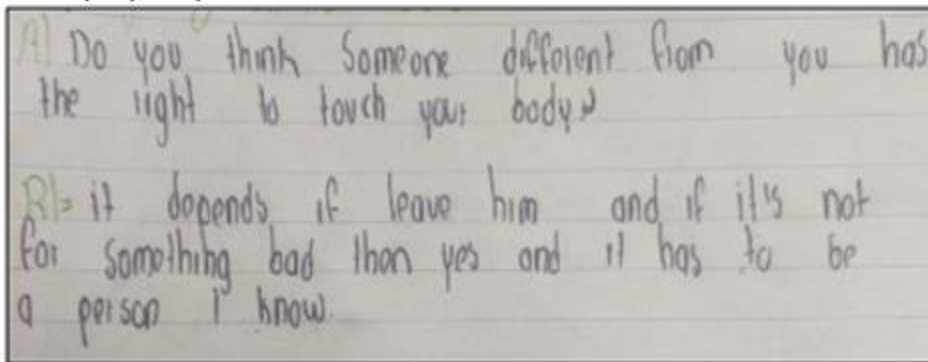 A) Do you think Someone different from you has
the right to touch your body?
R)= it depends if leave him and if it's not
for something bad then yes and it has to be
a person I know.